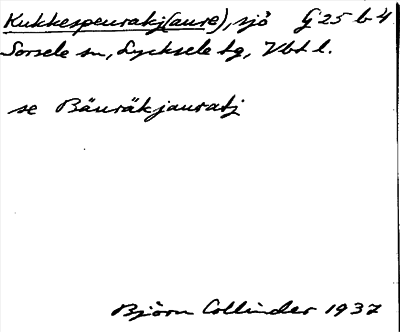 Kukkespeuratj(aure), sjö G 25 b 4
Sorsele sn, Lycksele tg, Vbt l.
se Bäuräkjauratj
Björn Collinder 1937